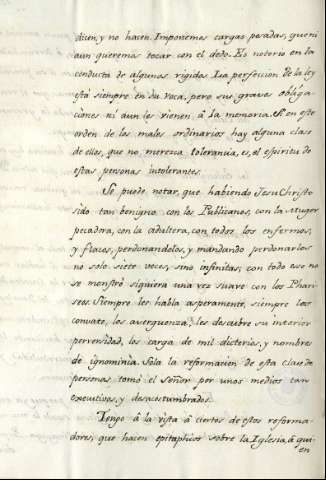 dicen, y no hacen. Imponemos cargas pesadas, que ni
aun queremos tocar con el dedo. Es notorio en la
conducta de algunos rigidos. La perfeccion de la ley
está siempre en su voca, pero sus graves obliga
ciones ni aun les vienen â la memoria. Si en este
orden de los males ordinarios hay alguna clase
de ellos, que no merezca tolerancia, es, el espiritu de
estas personas intolerantes.
Se puede notar, que habiendo Jesu Christo
sido tan benigno con los Publicanos, con la Muger
pecadora, con la adultera, con todos los enfermos,
y flacos, perdonandolos, y mandando perdonarlos
no solo siete veces, sino infinitas, con todo eso no
se mostró siquiera una vez suave con los Phari-
seos. Siempre les habla asperamente, siempre los
combate, los averguenza, les descubre su interior
perversidad, los carga de mil dicterios, y nombres
de ignominia. Sola la reformacion de esta clase de
personas, tomó el Señor por unos medios tan
executivos, y desacostumbrados.
Tengo â la vista â ciertos de estos reforma-
dores, que hacen epitaphios sobre la Iglesia, â qui
en